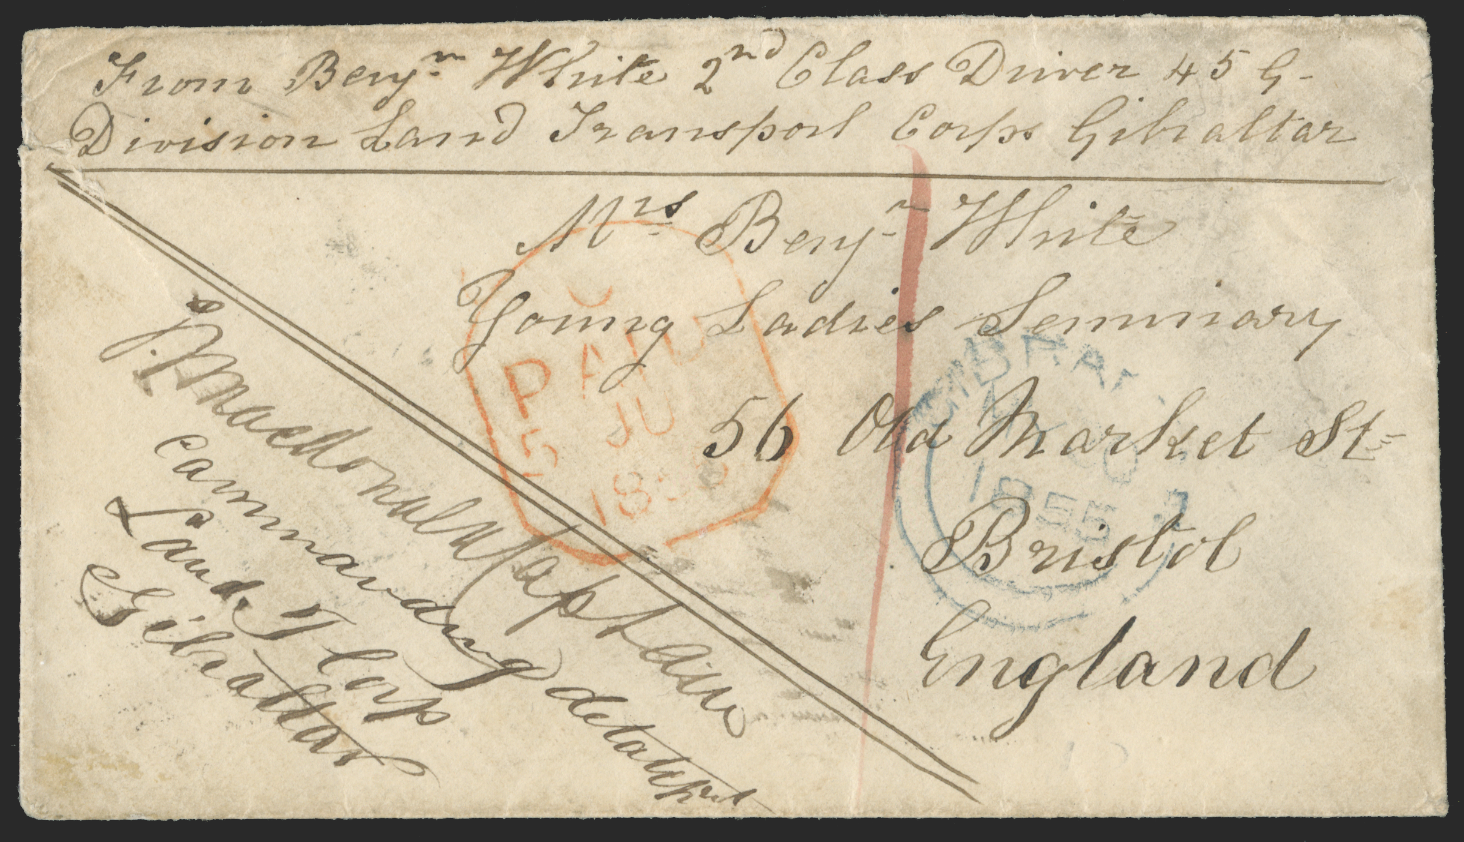 From Benjn White 2nd Class Driver 45 G-
Division Land Transport Corps Gibraltar
Mrs Benjn White
Young Ladies Seminary
56 Old Market St
Bristol
England
Macdonald Captain
Commanding detachmt
Land T Corp
Gibraltar
PAID
5 JU
18
GIBRAL
1855